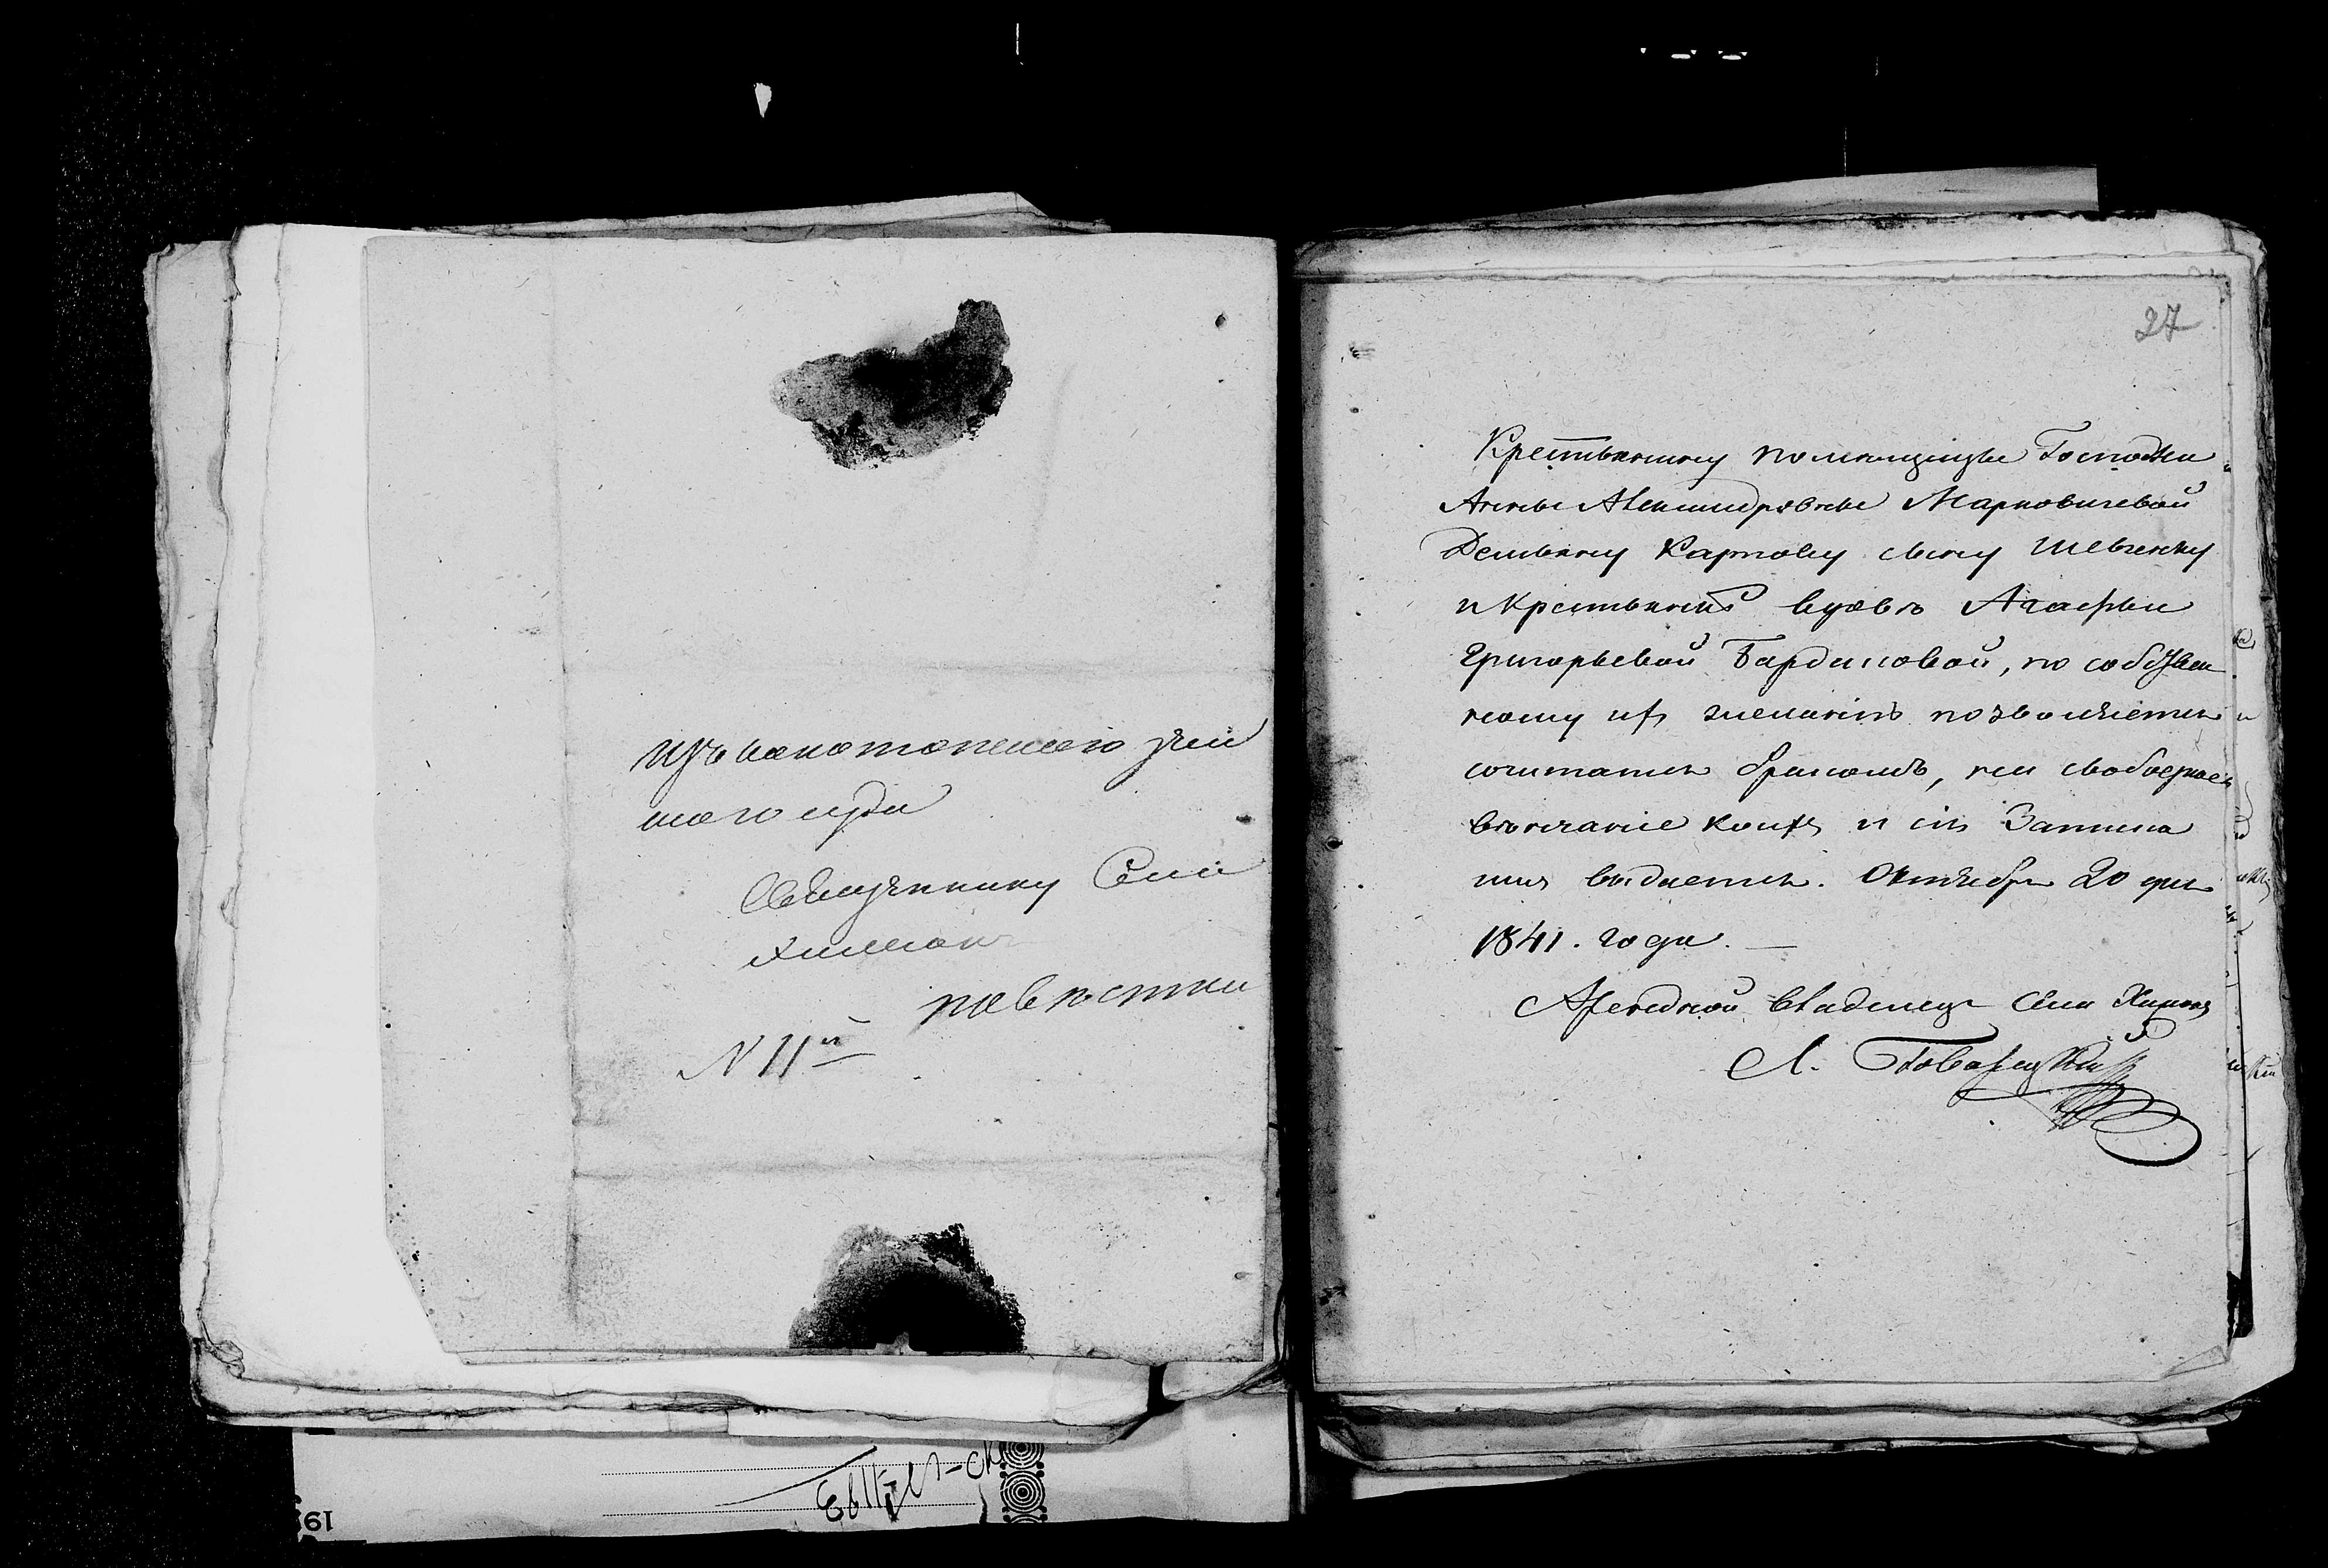 изъ конотопского зем
ского суда
Священнику Села
Хижок
повѣстки
N 11й
27
Крестьянину помещицы Госпожи
Анны Александровны Марковичевой
Демьяну Карпову сыну Шевченку
и Крестьянкѣ вдовѣ Агафьи
Григорьевой Бардаковой, по собствен
ному ихъ желанію позволяется
сочитатся бракомъ, на свободное
вѣнчаніе коихъ и сія Записка
имъ выдается. Октября 20 дня
1841. года. —
Арендной Владелец Села Хижок
Л.